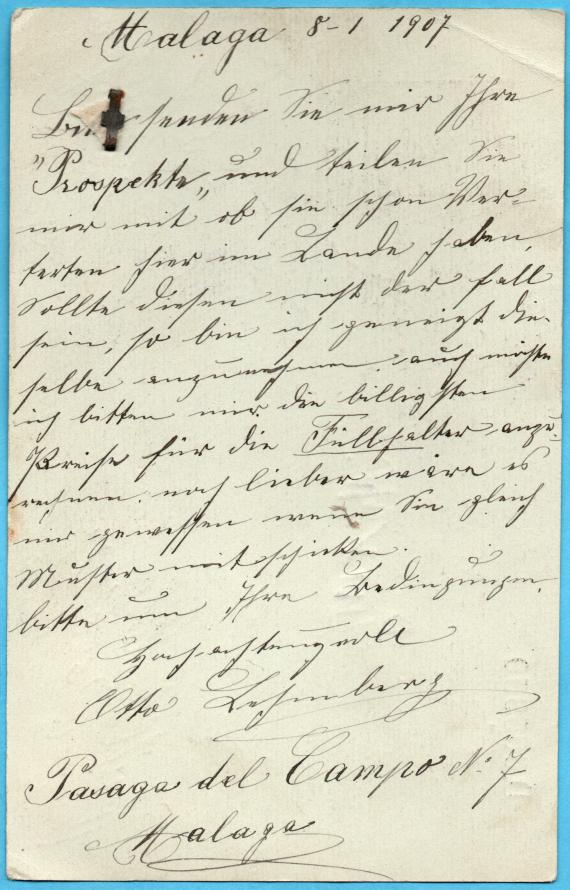 Malaga 8-1 1907
senden Sie mir Ihre
"Prospekte" und teilen Sie
mir mit ob sie schon Ver-
terten hier im Lande haben,
Sollte diesen nicht der fall
sein, so bin ich geneigt die-
selbe anzunehmen. auch möchte
ich bitten mir die billigsten
Preise für die Füllhalter anzu-
rechnen. noch lieber wäre es
mir gewessen wenn Sie gleich
Muster mit schicken.
bitte um Ihre Bedingungen.
Hochachtungsvoll
Otto
Pasaga del Campo No 7
Malaga